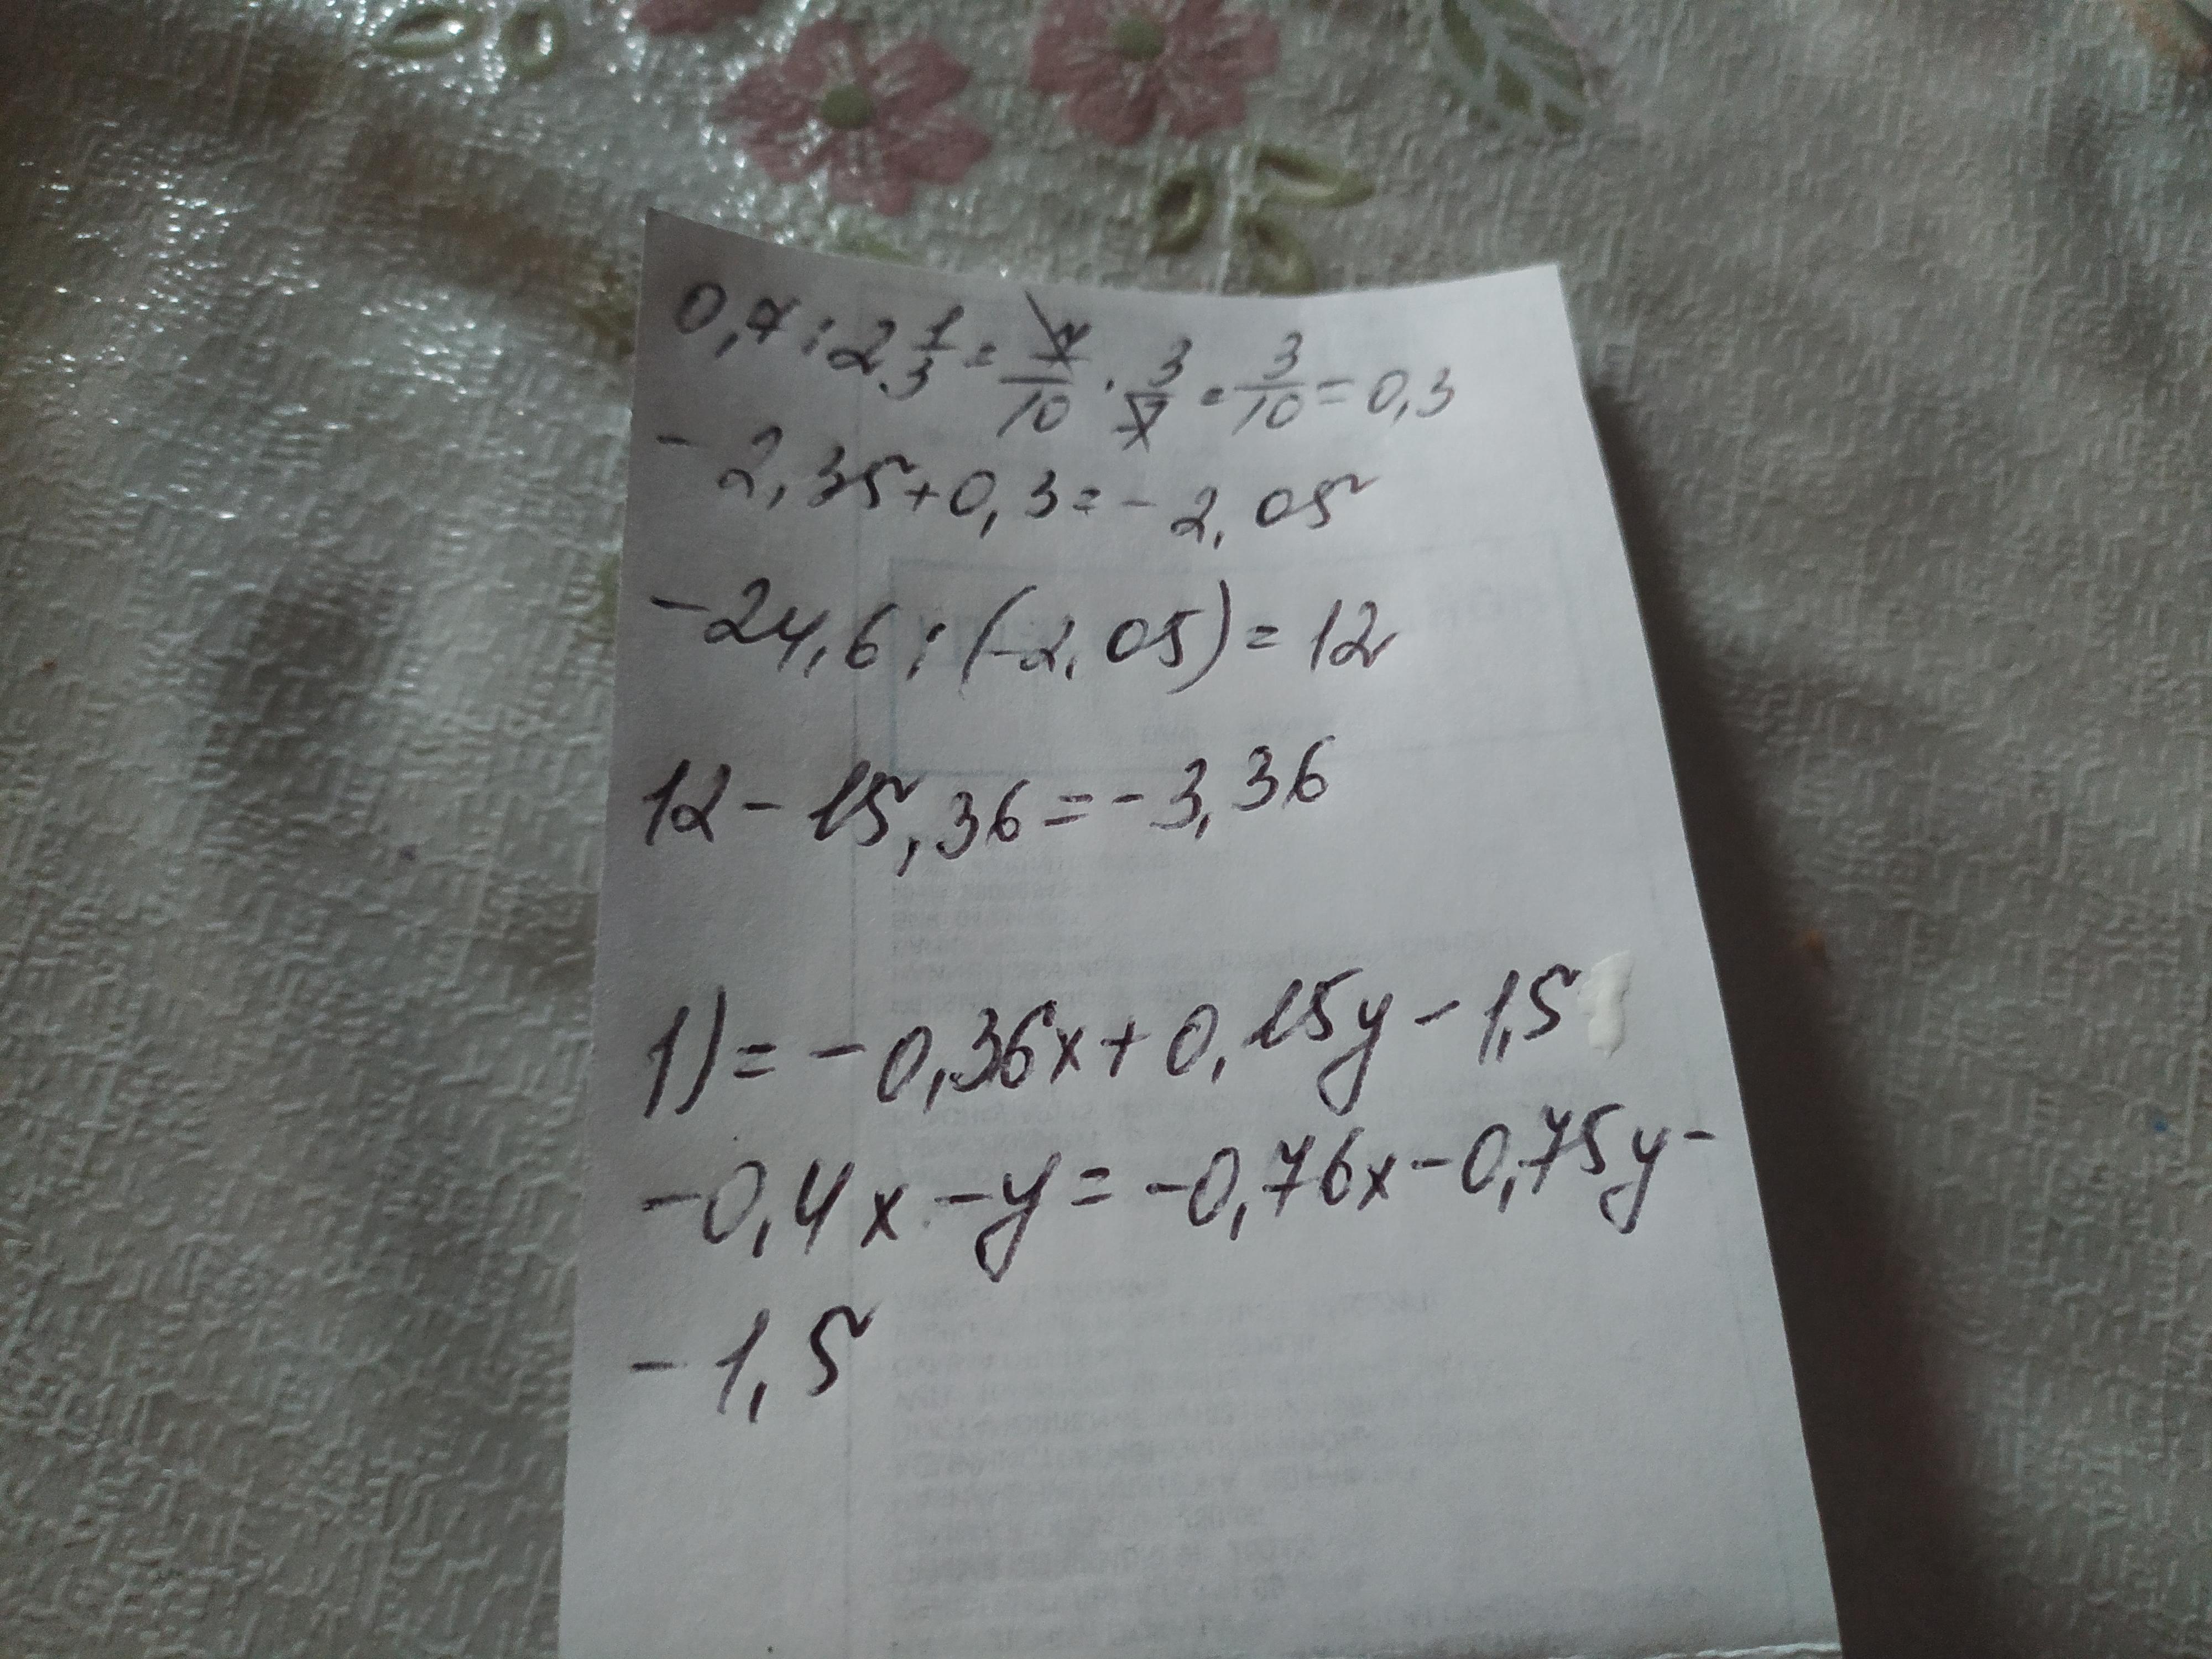 0,7:2 1/3 = 7/10 · 3/7 = 3/10 = 0,3
- 2,35+0,3=-2,05
-24,6:(-2,05)=12
12-15,36=-3,36
1)=-0,36x+0,15y-1,5
-0,4x-y=-0,76x-0,75y-
-1,5